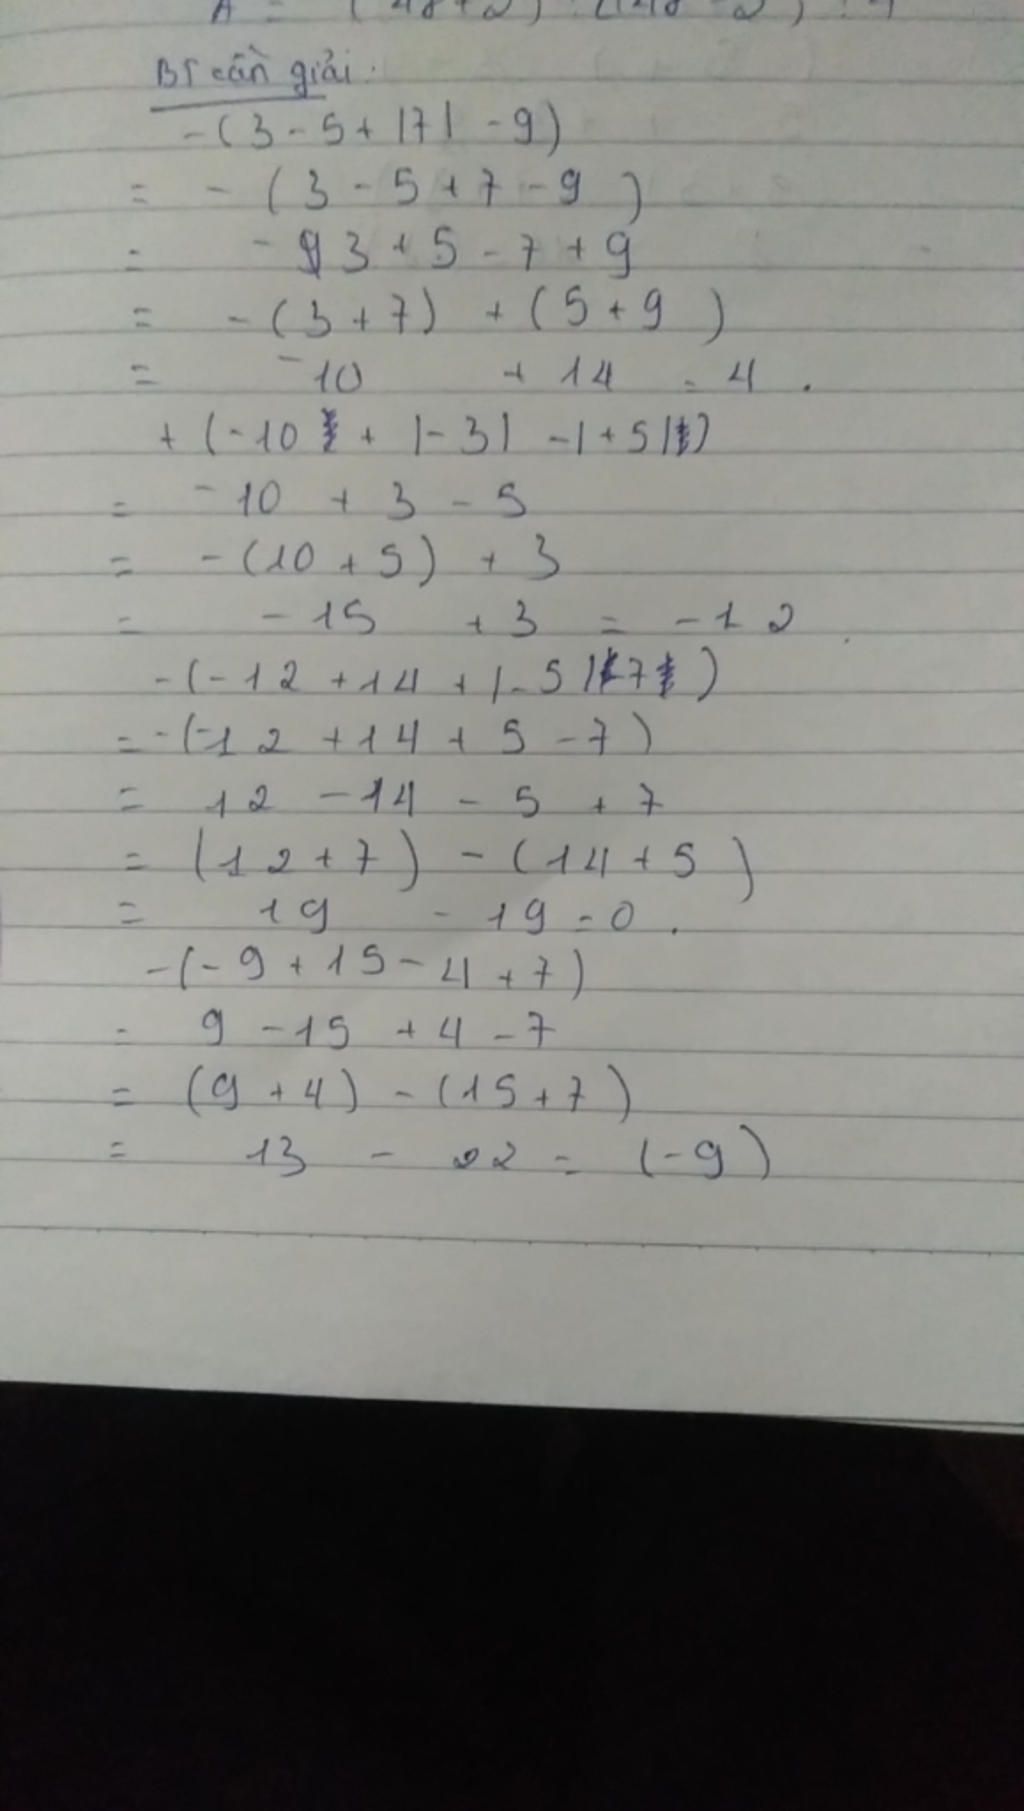 BT cần giải.
-(3-5+|7|-9)
= -(3-5+7-9)
= -3+5-7+9
= -(3+7) +(5+9)
= -10 + 14 = 4.
+(-10 + |-3| -|+5|)
= -10 + 3 - 5
= -(10+5) + 3
= -15 + 3 = -12.
-(-12+14+|-5| 7)
= -(-12+14+5-7)
= 12 - 14 - 5 + 7
= (12+7) - (14+5)
= 19 - 19 = 0.
-(-9+15-4+7)
= 9 - 15 + 4 - 7
= (9+4) - (15+7)
= 13 - 22 = (-9)